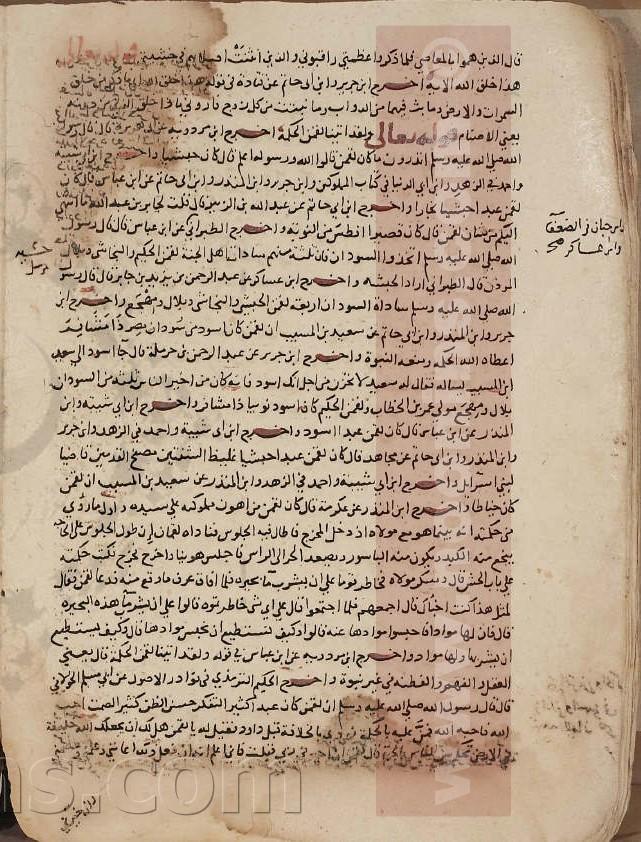 قال الذين هموا بالمعاصي فلما ذكروا عظمتي راقبوني والذين اثنت اصلابهم في خشيتي قوله تعالى
هذا خلق الله الاية اخرج ابن جرير وابن ابي حاتم عن قتادة في قوله هذا خلق الله اي ما ذكر من خلق
السموات والارض وما بث فيهما من الدواب وما انبتت من كل زوج فاروني ماذا خلق الذين من دونه
يعني الاصنام قوله تعالى ولقد اتينا لقمن الحكمة اخرج ابن مردويه عن قال قال رسول
الله صلى الله عليه وسلم اتدرون ما كان لقمن قالوا الله ورسوله اعلم قال كان حبشيا واخرج ابن ابي شيبة
واحمد في الزهد وابن ابي الدنيا في كتاب المملوكين وابن جرير وابن المنذر وابن ابي حاتم عن ابن عباس قال كان
لقمن عبدا حبشيا نجارا واخرج ابن ابي حاتم عن عبد الله بن الزبير قال قلت لجابر بن عبد الله ما انتهى
اليكم من شان لقمن قال كان قصيرا افطس من النوبة واخرج الطبراني عن ابن عباس قال قال رسول
الله صلى الله عليه وسلم اتخذوا السودان فان ثلثة منهم سادات اهل الجنة لقمن الحكيم والنجاشي وبلال
الموذن قال الطبراني اراد الحبشة واخرج ابن عساكر عن عبد الرحمن بن يزيد بن جابر قال قال رسول
الله صلى الله عليه وسلم سادة السودان اربعة لقمن الحبشي والنجاشي وبلال ومهجع واخرج ابن
جرير وابن المنذر وابن ابي حاتم عن سعيد بن المسيب ان لقمن كان اسود من سودان مصر ذا مشافر
اعطاه الله الحكمة ومنعه النبوة واخرج ابن جرير عن عبد الرحمن بن حرملة قال جا اسود الى سعيد
ابن المسيب يساله فقال له سعيد لا تحزن من اجل انك اسود فانه كان من اخير الناس ثلثة من السودان
بلال ومهجع مولى عمر بن الخطاب ولقمن الحكيم كان اسود نوبيا ذا مشافر واخرج ابن ابي شيبة وابن
المنذر عن ابن عباس قال كان لقمن عبدا اسود واخرج ابن ابي شيبة واحمد في الزهد وابن جرير
وابن المنذر وابن ابي حاتم عن مجاهد قال كان لقمن عبدا حبشيا غليظ الشفتين مصفح القدمين قاضيا
لبني اسرايل واخرج ابن ابي شيبة واحمد في الزهد وابن المنذر عن سعيد بن المسيب ان لقمن
كان خياطا واخرج ابن المنذر عن عكرمة قال كان لقمن من اهون مملوكيه على سيده واول ما روي
من حكمته انه بينما هو مع مولاه اذ دخل المخرج فاطال فيه الجلوس فناداه لقمان ان طول الجلوس على الحاجة
ينجع منه الكبد ويكون منه الباسور ويصعد الحر الى الراس فاجلس هوينا واخرج فخرج فكتب حكمته
على باب الحش قال وسكر مولاه فخاطر قوما على ان يشرب ما بحيره فلما افاق عرف ما وقع منه فدعا لقمن فقال
لمثل هذا كنت اخباك قال اجمعهم فلما اجتمعوا قال على اي شي خاطرتموه قالوا على ان يشرب ما هذه البحيره
قال فان لها مواد فاحبسوا موادها عنه قالوا وكيف نستطيع ان نحبس موادها قال وكيف يستطيع
ان يشربها ولها مواد واخرج ابن مردويه عن ابن عباس في قوله ولقد اتينا لقمن الحكمة قال يعني
العقل والفهم والفطنة في غير نبوة واخرج الحكيم الترمذي في نوادر الاصول عن ابي مسلم الخولاني
قال قال رسول الله صلى الله عليه وسلم ان لقمن كان عبدا كثير التفكر حسن الظن كثير الصمت احب
الله فاحبه الله فمن عليه بالحكمة نودي بالخلافة قبل داود فقيل له يا لقمن هل لك ان يجعلك الله خليفة
في الارض تحكم بين الناس بالحق قال لقمن ان ربي قبلت فاني اعلم انه ان فعل ذلك اعانني وعلمني
وابن حبان في الضعفا
وابن عساكر صح